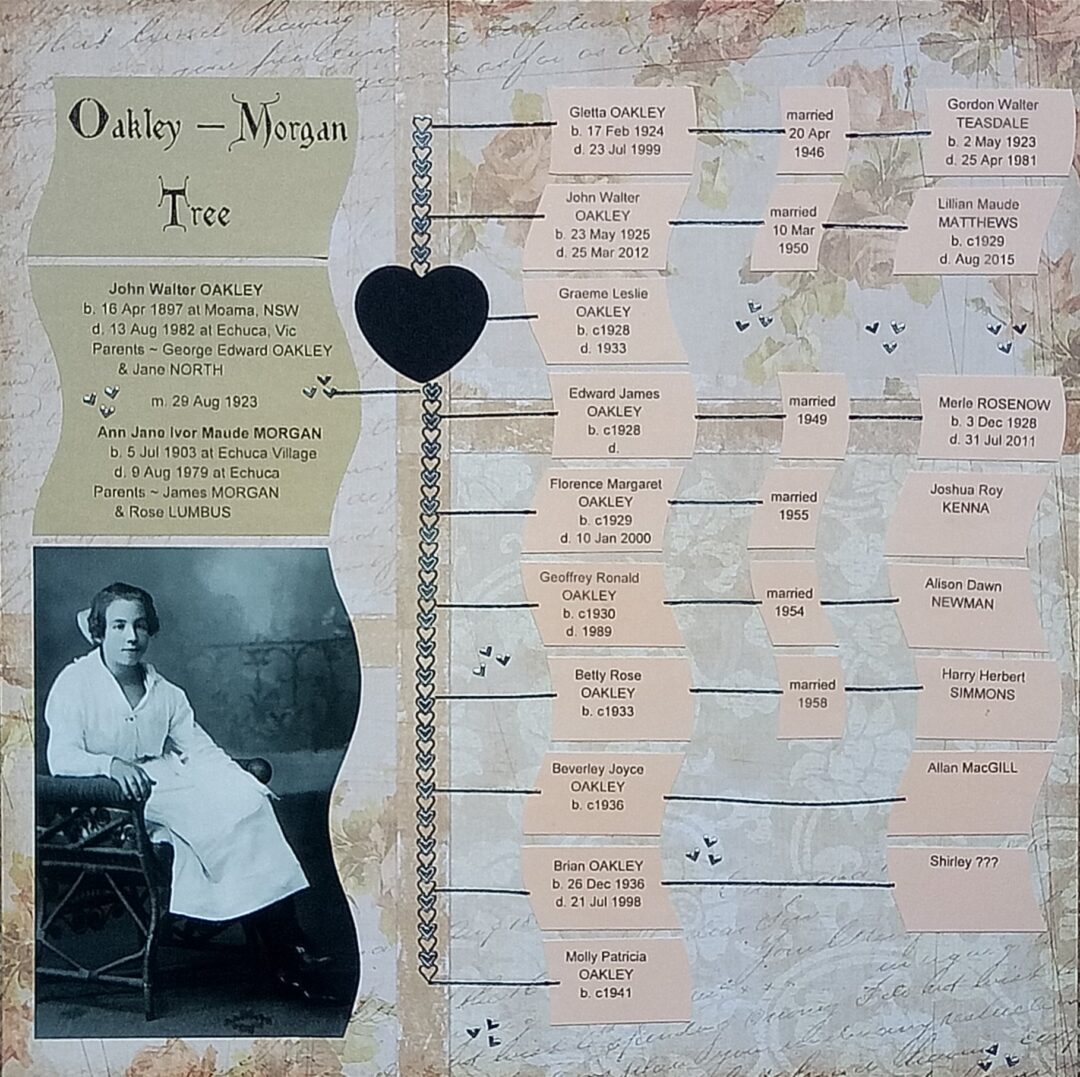 Oakley – Morgan
Tree
John Walter OAKLEY
b. 16 Apr 1897 at Moama, NSW
d. 13 Aug 1982 at Echuca, Vic
Parents ~ George Edward OAKLEY
& Jane NORTH
m. 29 Aug 1923
Ann Jane Ivor Maude MORGAN
b. 5 Jul 1903 at Echuca Village
d. 9 Aug 1979 at Echuca
Parents ~ James MORGAN
& Rose LUMBUS
Gletta OAKLEY
b. 17 Feb 1924
d. 23 Jul 1999
married
20 Apr
1946
Gordon Walter
TEASDALE
b. 2 May 1923
d. 25 Apr 1981
John Walter
OAKLEY
b. 23 May 1925
d. 25 Mar 2012
married
10 Mar
1950
Lillian Maude
MATTHEWS
b. c1929
d. Aug 2015
Graeme Leslie
OAKLEY
b. c1928
d. 1933
Edward James
OAKLEY
b. c1928
d.
married
1949
Merle ROSENOW
b. 3 Dec 1928
d. 31 Jul 2011
Florence Margaret
OAKLEY
b. c1929
d. 10 Jan 2000
married
1955
Joshua Roy
KENNA
Geoffrey Ronald
OAKLEY
b. c1930
d. 1989
married
1954
Alison Dawn
NEWMAN
Betty Rose
OAKLEY
b. c1933
married
1958
Harry Herbert
SIMMONS
Beverley Joyce
OAKLEY
b. c1936
Allan MacGILL
Brian OAKLEY
b. 26 Dec 1936
d. 21 Jul 1998
Shirley ???
Molly Patricia
OAKLEY
b. c1941